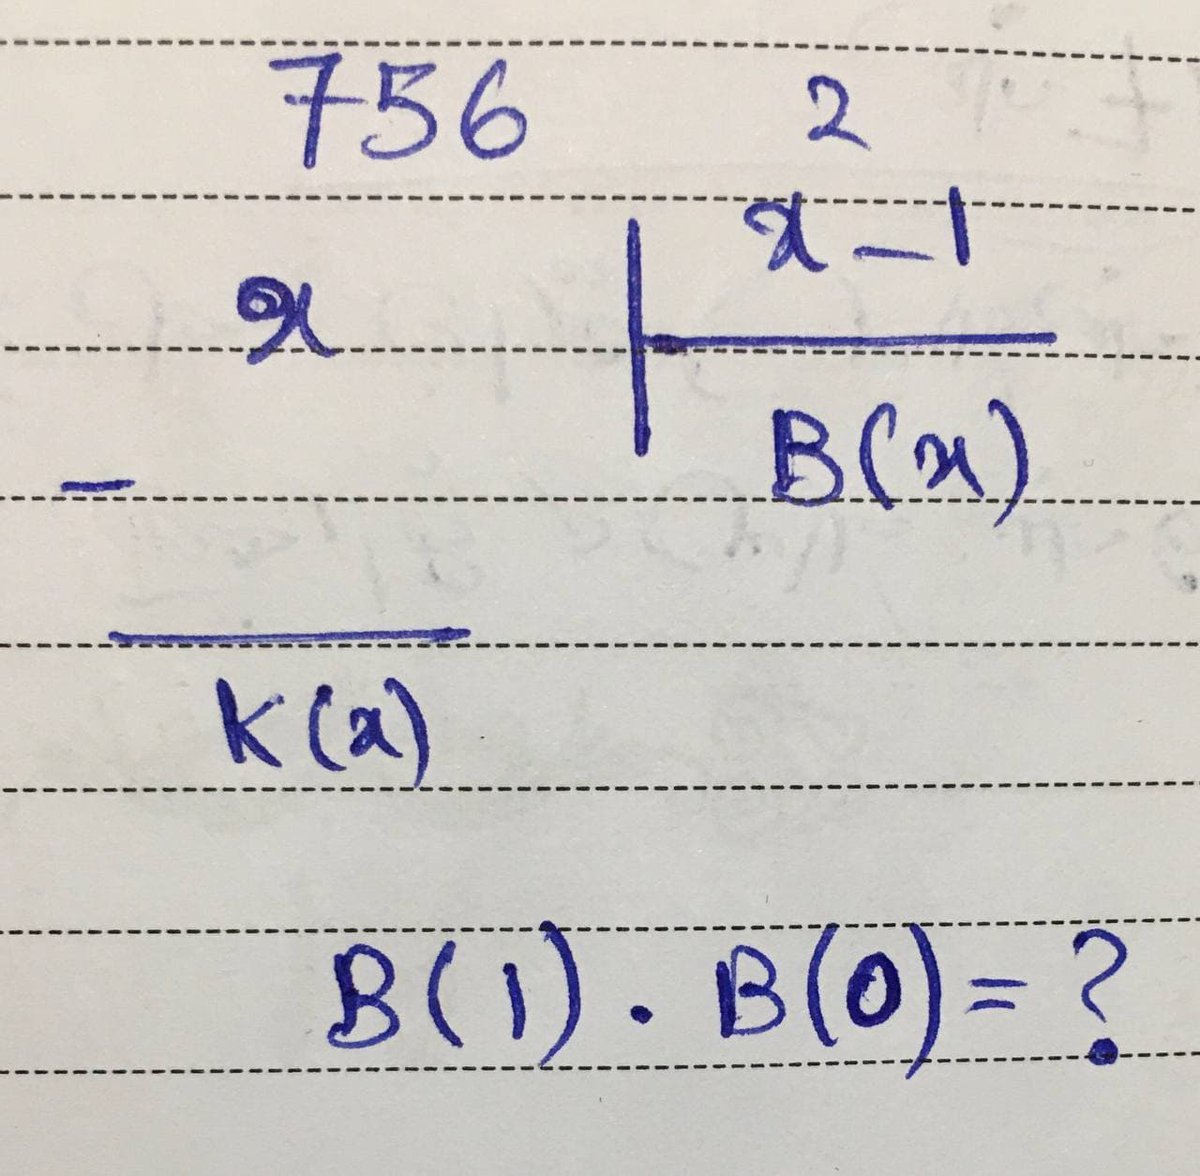 756 2
x x-1
B(x)
-
K(x)
B(1) . B(0) = ?